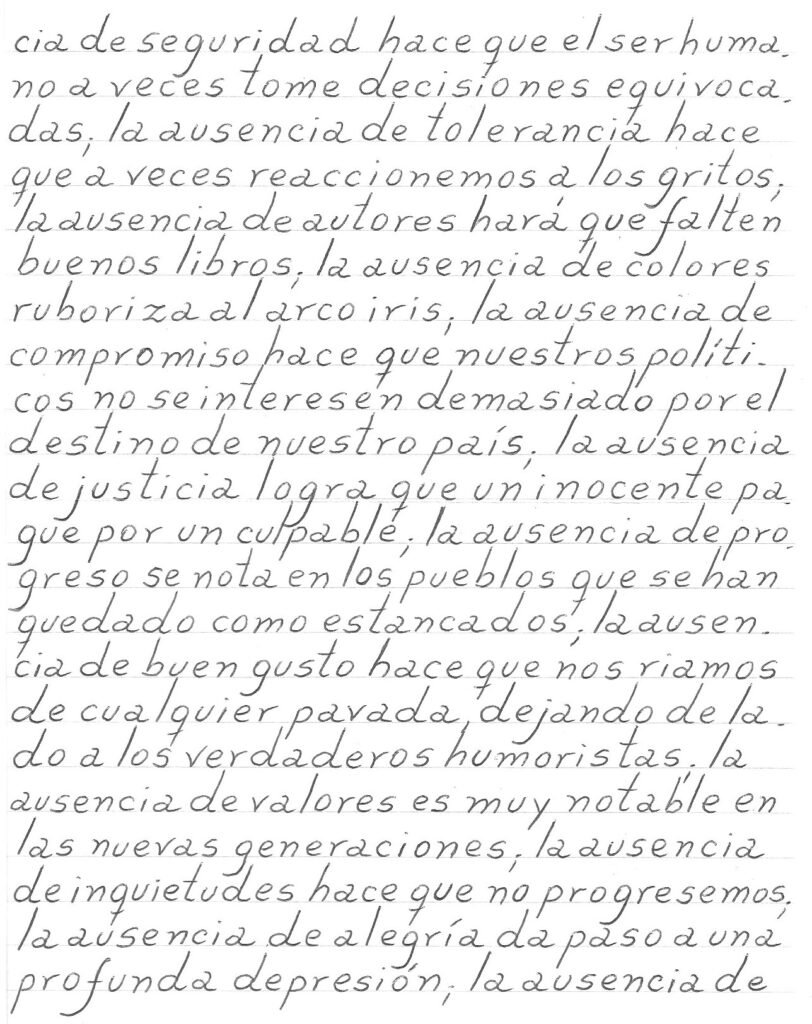 cia de seguridad hace que el ser huma-
no a veces tome decisiones equivoca-
das; la ausencia de tolerancia hace
que a veces reaccionemos a los gritos;
la ausencia de autores hará que falten
buenos libros; la ausencia de colores
ruboriza al arco iris; la ausencia de
compromiso hace que nuestros políti-
cos no se interesen demasiado por el
destino de nuestro país; la ausencia
de justicia logra que un inocente pa-
gue por un culpable; la ausencia de pro-
greso se nota en los pueblos que se han
quedado como estancados; la ausen-
cia de buen gusto hace que nos riamos
de cualquier pavada, dejando de la-
do a los verdaderos humoristas; la
ausencia de valores es muy notable en
las nuevas generaciones; la ausencia
de inquietudes hace que no progresemos;
la ausencia de alegría da paso a una
profunda depresión; la ausencia de